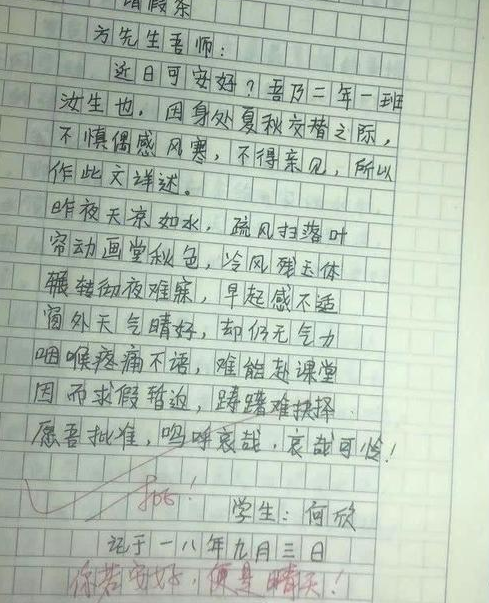 请假条
方先生吾师：
近日可安好？吾乃二年一班
汝生也，因身处夏秋交替之际，
不慎偶感风寒，不得亲见，所以
作此文详述。
昨夜天凉如水，疏风扫落叶
帘动画堂秋色，冷风残玉体
辗转彻夜难寐，早起感不适
窗外天气晴好，却仍无气力
咽喉疼痛不语，难能赴课堂
因而求假暂迫，踌躇难抉择
愿吾批准，呜呼哀哉，哀哉可怜！
学生：何欣
记于一八年九月三日
你若安好，便是晴天！